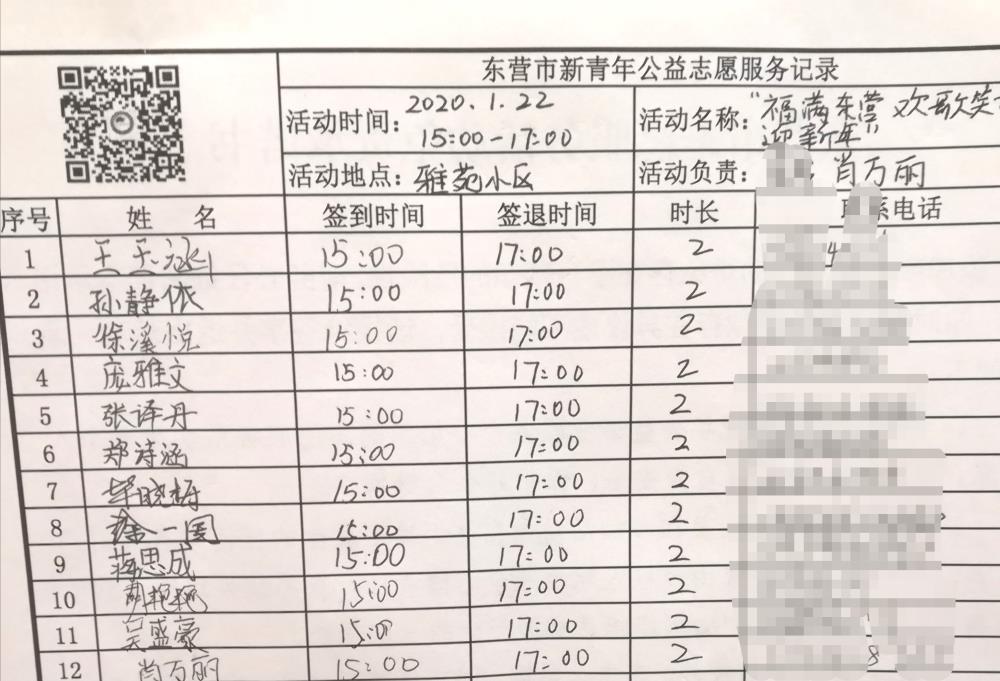 东营市新青年公益志愿服务记录
活动时间: 2020.1.22
15:00-17:00
活动名称: "福满东营 欢歌笑
迎新年"
活动地点: 雅苑小区
活动负责: 肖万丽
序号 姓 名 签到时间 签退时间 时长 系电话
1 王天涵 15:00 17:00 2 4
2 孙静依 15:00 17:00 2
3 徐溪悦 15:00 17:00 2
4 庞雅文 15:00 17:00 2
5 张译丹 15:00 17:00 2
6 郑诗涵 15:00 17:00 2
7 毕晓 15:00 17:00 2
8 徐一圆 15:00 17:00 2
9 蒋思成 15:00 17:00 2
10 胡艳 15:00 17:00 2
11 吴盛豪 15:00 17:00 2
12 肖万丽 15:00 17:00 2 8